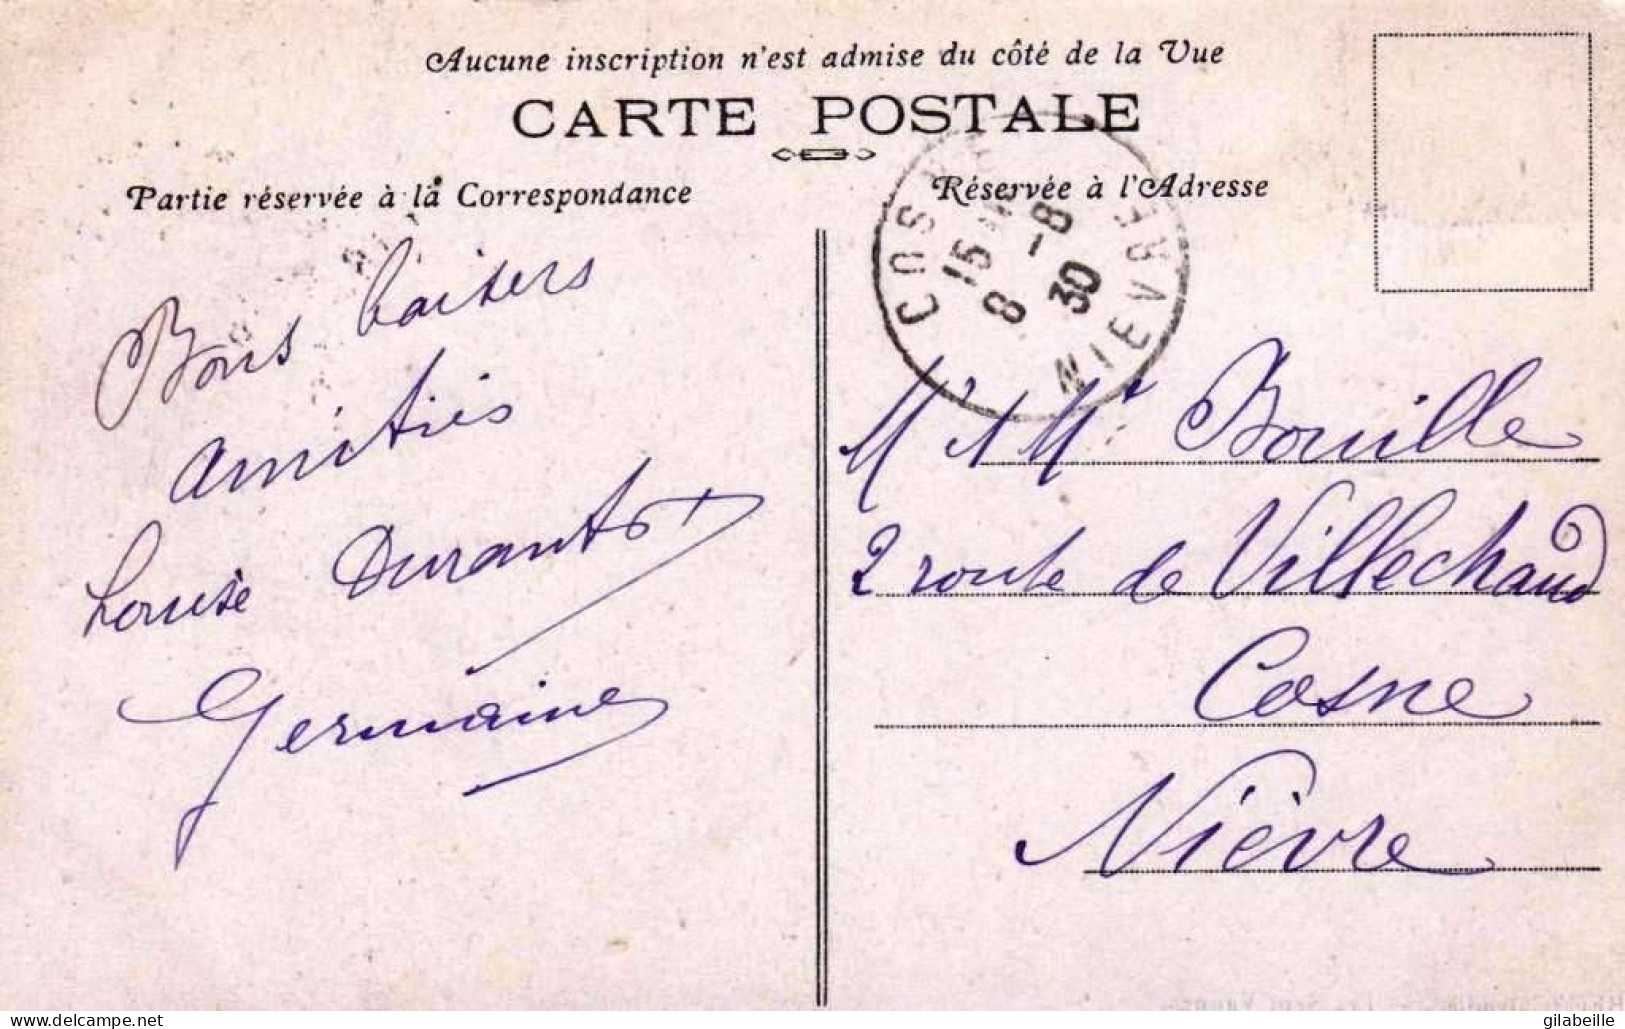 Aucune inscription n'est admise du côté de la Vue
CARTE POSTALE
Partie réservée à la Correspondance
Réservée à l'Adresse
COSNE
15
8 -8
30
NIEVRE
Bons baisers
amitiés
Louise Durant
Germaine
Bouille
2 route de Villechaud
Cosne
Nièvre
gilabeille